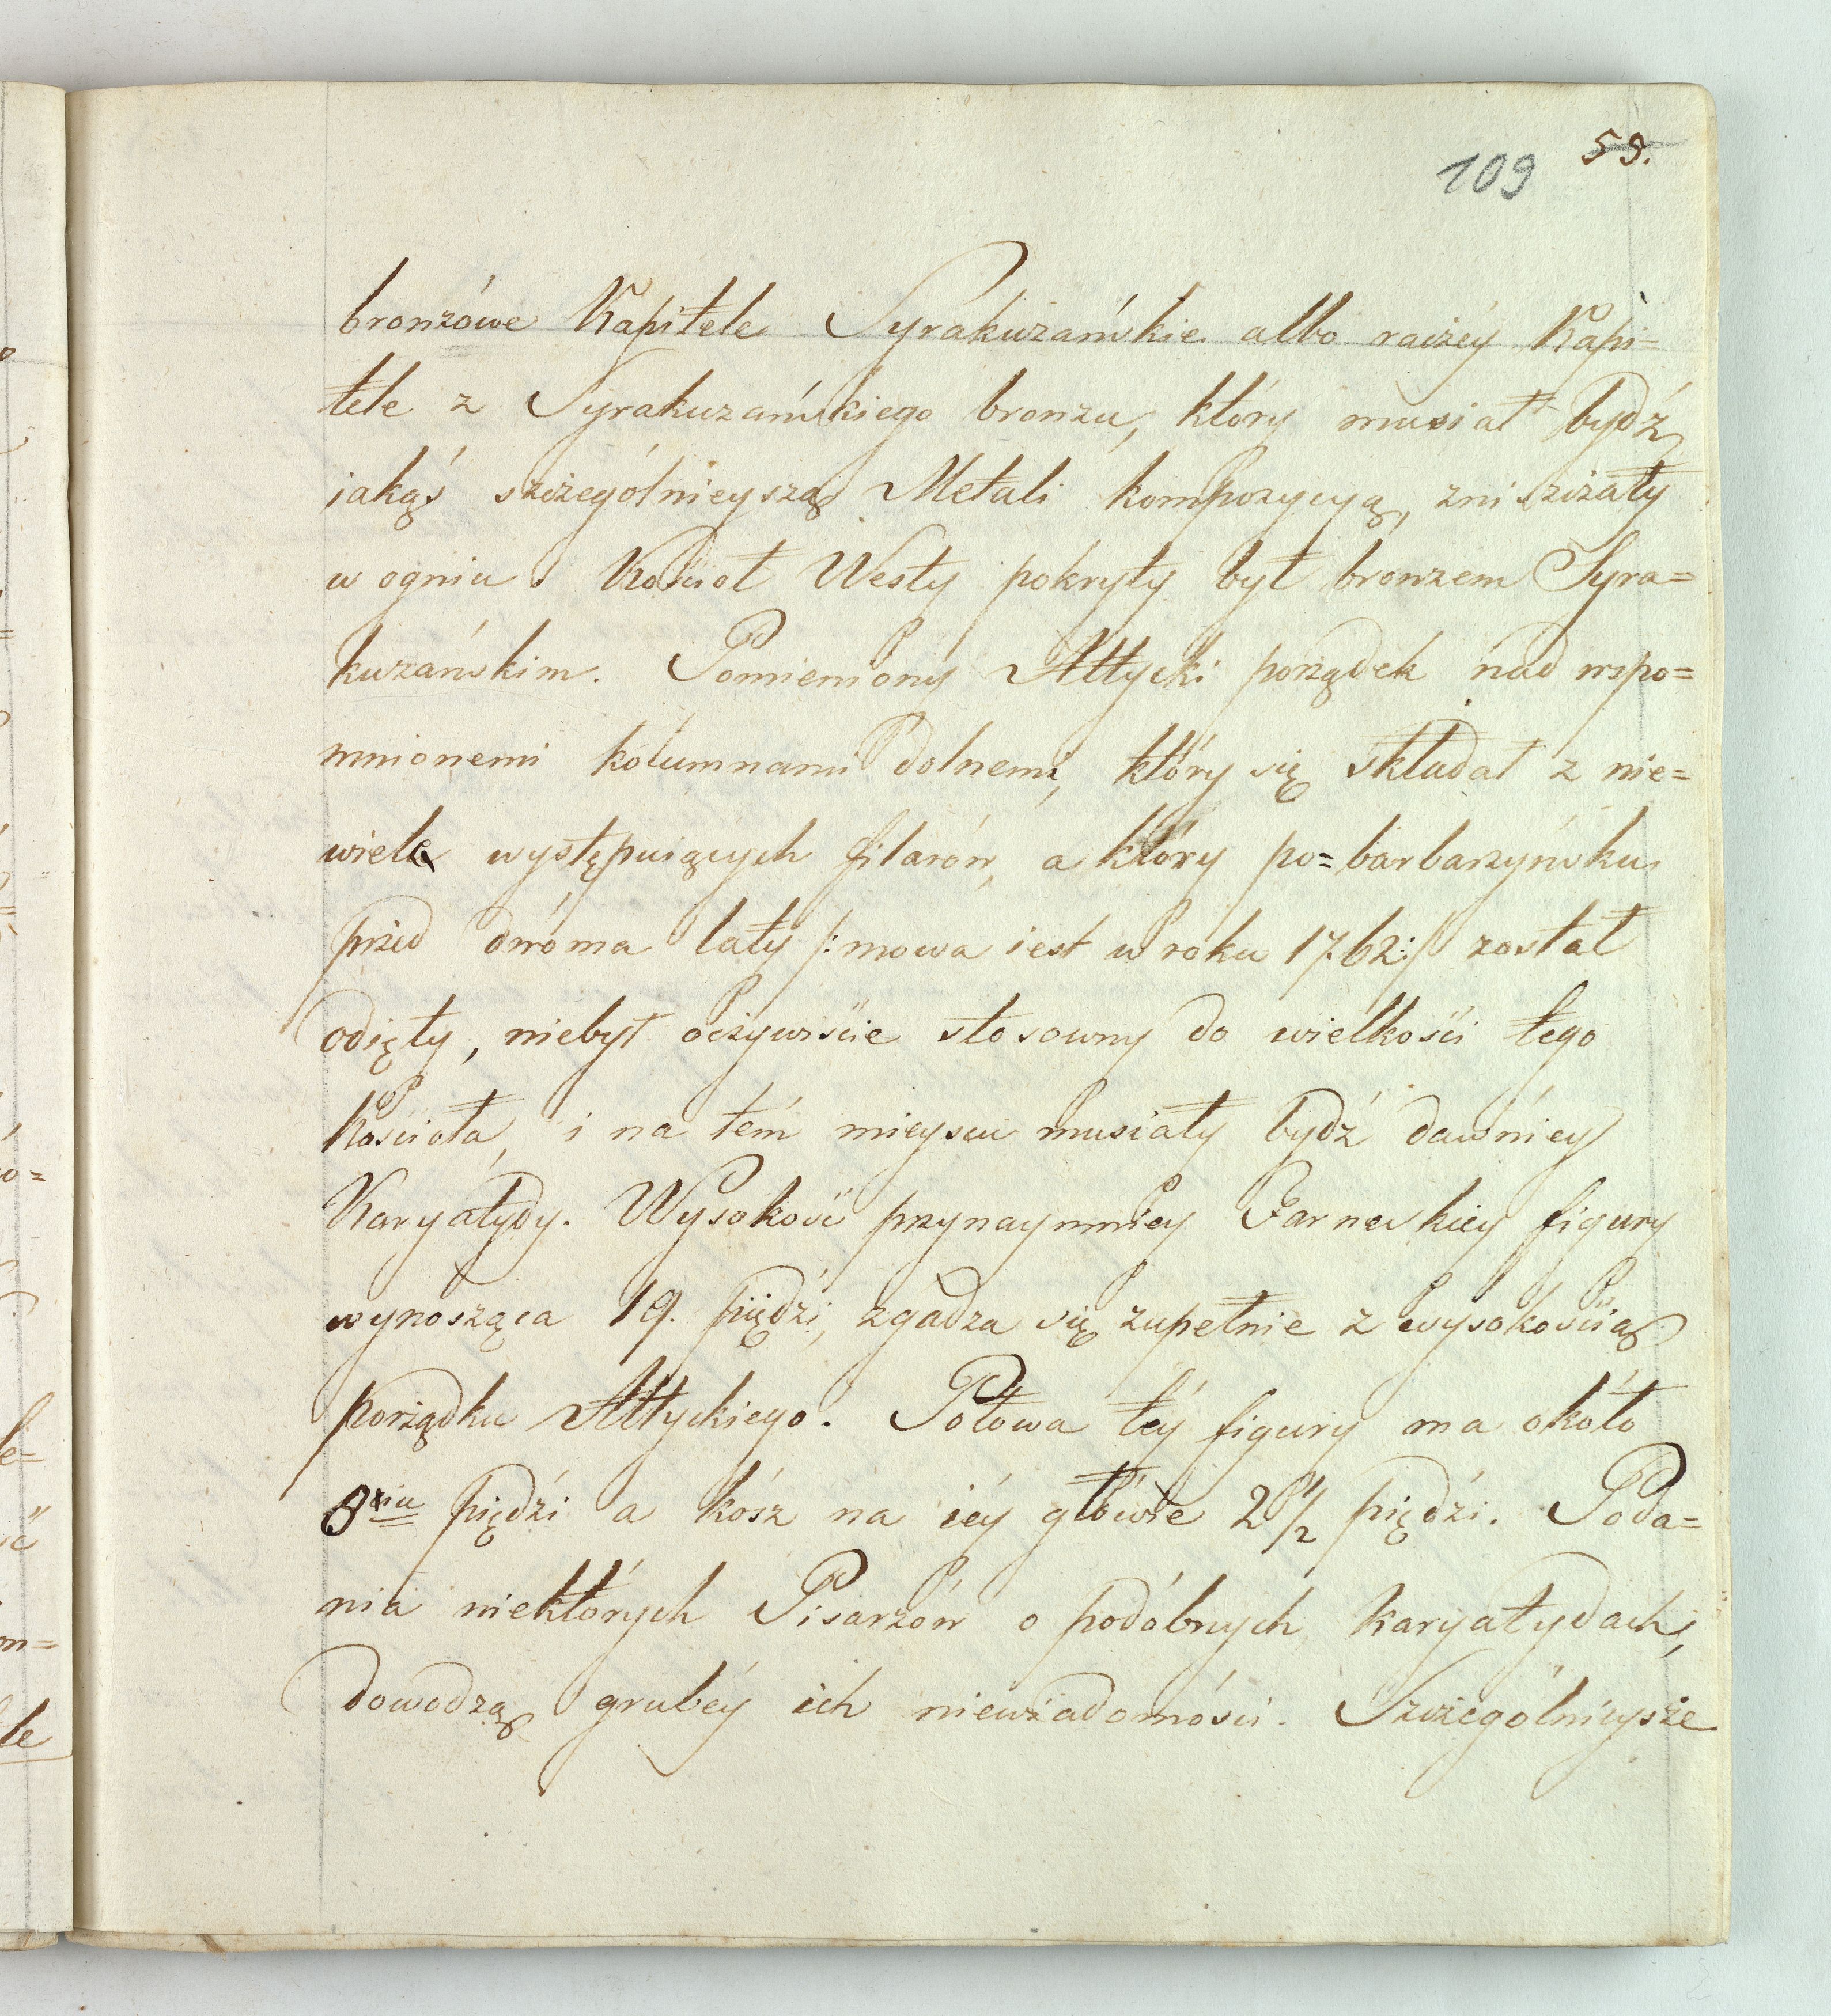 109 59.
bronzówe Kapitele Syrakuzańskie albo raczéy Kapi=
tele z Syrakuzańskiego bronzu, który musiał bydź
iakąś szczególnieyszą Metali kompozycyą, zniszczały
w ogniu. Kościoł Westy pokryty był bronzem Syra=
kuzańskim. Pomieniony Attycki porządek nad wspo=
mnionemi kolumnami dolnemi, który się składał z nie=
wiele występuiących filarów, a który po=barbarzyńsku
przed dwóma laty /: mowa iest w roku 1762:/ został
odięty, niebył oczywiście stosowny do wielkości tego
Kościoła, i na tém mieyscu musiały bydź dawniey
Karyatydy. Wysokość przynaymniey Farneskiey figury
wynosząca 19. piędzi, zgadza się zupełnie z wysokością
porządku Attyckiego. Połowa téy figury ma około
8miu piędzi a kósz na iéy głowie 2 1/2 piędzi. Poda=
nia niektórych Pisarzów o podóbnych karyatydach,
dowodzą grubéy ich niewiadomości. Szczególnieysze